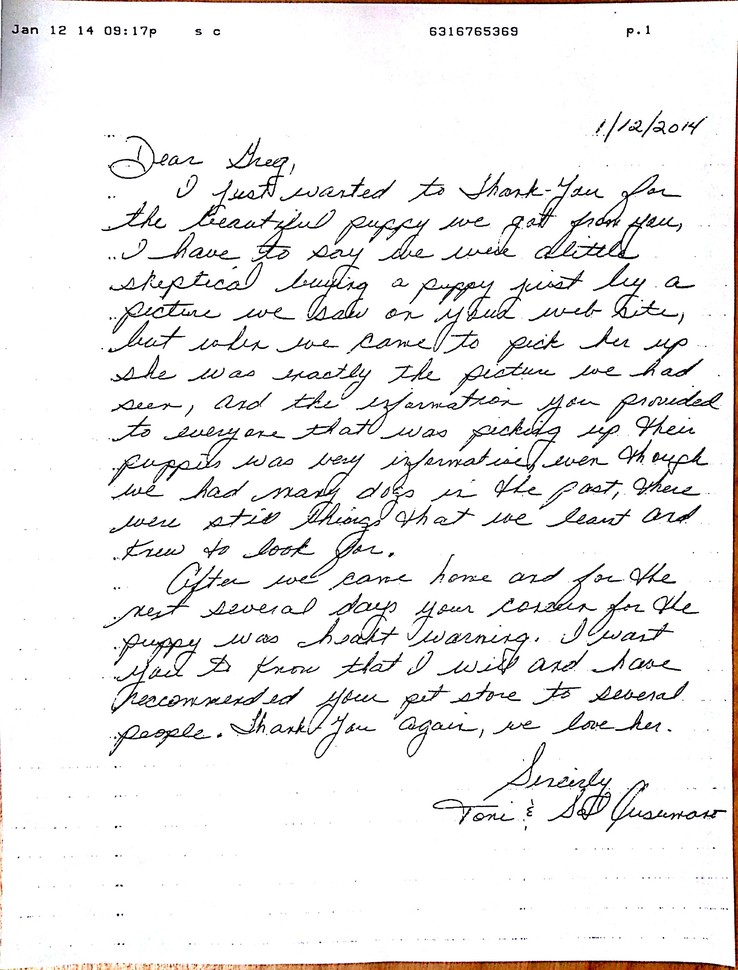 Jan 12 14 09:17p s c 6316765369 p.1
1/12/2014
Dear Greg,
I just wanted to Thank-You for
the beautiful puppy we got from you,
I have to say we were alittle
skeptical buying a puppy just by a
picture we saw on your web site,
but when we came to pick her up
she was exactly the picture we had
seen, and the information you provided
to everyone that was picking up their
puppies was very informative, even though
we had many dogs in the past, there
were still things that we learnt and
knew to look for.
After we came home and for the
next several days your concern for the
puppy was heart warming. I want
you to know that I will and have
reccommended your pet store to several
people. Thank-You again, we love her.
Sincirly
Toni & Sal Cusumano